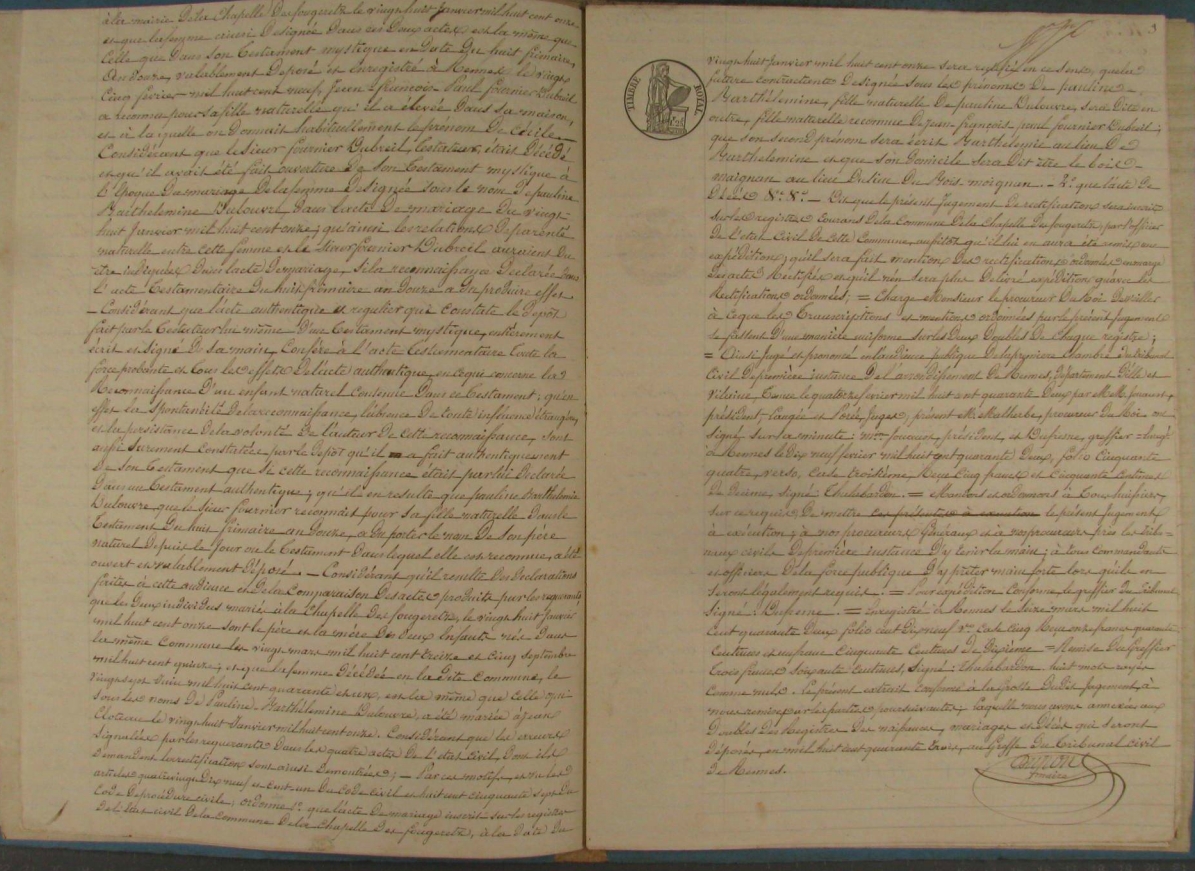 à la mairie de la Chapelle des fougeretz le vingt huit Janvier mil huit cent onze
et que la femme ainsi Designée Dans ces Deux actes est la même que
Celle que Dans son Testament mystique en Date Du huit frimaire
An Douze, valablement Deposé et enregistré à Rennes le vingt
cinq février mil huit cent neuf, Jean françois Paul fournier Dubreil
a reconnue pour sa fille naturelle qu'il a élevée Dans sa maison,
et à laquelle on Donnait habituellement le prénom De Cécile.
Considérant que le Sieur fournier Dubreil, testateur, était Décédé
et qu'il avait été fait ouverture De Son Testament mystique à
l'Epoque Du mariage De la femme Designée sous le nom De pauline
Barthelemine Dulouvre, Dans l'acte De mariage Du vingt
huit Janvier mil huit cent onze; qu'ainsi les relations De parenté
naturelle entre cette femme et le Sieur fournier Dubreil auraient Du
être indiquées Dans l'acte De mariage, si la reconnaissance Déclarée Dans
l'acte Testamentaire Du huit frimaire an Douze a Du produire effet
_ Considérant que l'acte authentique et régulier qui constate le Dépôt
fait par le Testateur lui même D'un Testament mystique, entièrement
écrit et signé De sa main, Confère à l'acte Testamentaire Toute la
force probante et tous les effets De l'acte authentique, en ce qui concerne la
Reconnaissance D'un enfant naturel contenue Dans ce Testament; qu'en
effet la Spontanéité De la reconnaissance, l'absence De toute influence étrangère,
et la persistance De la volonté De l'auteur De cette reconnaissance, sont
aussi surement Constatées par le Dépôt qu'il a fait authentiquement
De son Testament que Si cette reconnaissance était par lui Déclarée
Dans un Testament authentique; qu'il en resulte que pauline Barthelemie
Dulouvre, que le Sieur fournier reconnait pour sa fille naturelle Dans le
Testament Du huit frimaire an Douze, a Du porter le nom De Son père
naturel Depuis le Jour où le Testament Dans lequel elle est reconnue, a été
ouvert et valablement Déposé. _ Considérant qu'il resulte Des Déclarations
faites à cette audience et De la Comparaison Des actes produits par les requérants
que les Deux individus mariés à la Chapelle Des fougeretz, le vingt huit Janvier
mil huit cent onze sont le père et la mère De Deux Enfants nés Dans
la même Commune les vingt mars mil huit cent treize et cinq septembre
mil huit cent quinze; et que la femme Décédée en la Dite Commune, le
vingt sept Juin mil huit cent quarante et un, est la même que Celle qui
Sous les noms De Pauline Barthélemine Dulouvre, a été mariée à Jean
Cloteau le vingt huit Janvier mil huit cent onze. Considérant que les erreurs
Signalées par les requérants Dans les quatre actes De l'etat civil, Dont ils
Demandent la rectification sont ainsi Démontrées; _ Par ces motifs, et vu les
articles quatre vingt Dix neuf et cent un Du Code civil et huit cent cinquante sept Du
Code De procédure civile, ordonne 1° que l'acte De mariage inscrit sur les registres
De l'Etat civil De la Commune De la Chapelle Des fougeretz, à la Date Du
TIMBRE ROYAL
vingt huit janvier mil huit cent onze sera rectifié en ce sens, que la
future contractante Designée sous les prénoms De pauline
Barthélemine, fille naturelle De pauline Dulouvre, sera Dite en
outre, fille naturelle reconnue De Jean françois paul fournier Dubreil;
que son second prénom sera écrit Barthelemie au lieu De
Barthelemine et que son Domicile sera Dit être le bois
maignan au lieu De lieu Du Bois moignan. _ 2° que l'acte De
Décès &ª &ª _ Dit que le présent Jugement De rectification sera inscrit
sur les registres Courans De la Commune De la Chapelle Des fougeretz, par l'officier
De l'etat Civil De cette Commune, aussitôt qu'il lui en aura été remis une
expédition; qu'il sera fait mention Des rectifications ordonnées en marge
Des actes Rectifiés et qu'il n'en sera plus Délivré expédition qu'avec les
Rectifications ordonnées; = Charge Monsieur le procureur Du Roi De veiller
à ce que les Transcriptions et mentions ordonnées par le présent Jugement
se fassent D'une manière uniforme sur les Deux Doubles De Chaque registre;
= Ainsi Jugé et prononcé en l'audience publique De la première Chambre Du tribunal
Civil De première instance De l'arrondissement De Rennes, Département D'Ille et
Vilaine, Tenue le quatre février mil huit cent quarante Deux, par M.M. Jouaust,
président, Tangie et Juges, présent M. Malherbe, procureur Du Roi. _
Signé sur la minute; Mrs Jouaust, président, et Dufresne, greffier = Enregistré
à Rennes le Dix neuf février mil huit cent quarante Deux, folio Cinquante
quatre, verso, Case troisième, Reçu Cinq francs et Cinquante centimes
De Décime, signé Thalabardon. = Mandons et ordonnons à tous huissiers,
sur ce requis De mettre le présent Jugement
à exécution; à nos procureurs Généraux et à nos procureurs près les tribu=
naux civils De première instance D'y tenir la main; à tous commandants
et officiers De la force publique D'y prêter main forte lorsqu'ils en
Seront légalement requis. = Pour expédition Conforme, le greffier Du tribunal
Signé: Dufresne. = Enregistré à Rennes le Seize mars mil huit
Cent quarante Deux folio cent Dix neuf Vº. Case cinq Reçu onze francs quarante
Centimes et un franc Cinquante Centimes De Dixième = Remise Du Greffier
Trois francs Soixante Centimes, Signé; Thalabardon. huit mots rayés
Comme nuls. Le présent extrait conforme à la Grosse Du Dit Jugement, à
nous remise par les parties poursuivantes, laquelle nous avons annexée aux
Doubles Des Registres De naissances, mariages et Décès qui seront
Déposés, en mil huit cent quarante trois, au Greffe Du Tribunal Civil
De Rennes.